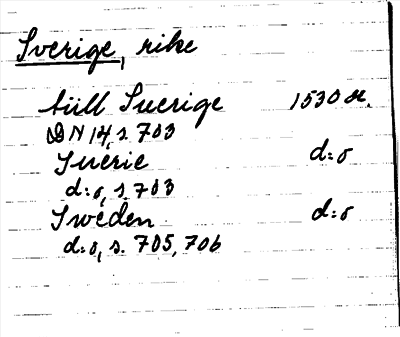 Sverige, rike
till Suerige 1530 #.
DN 14, s. 703
Suerie d:o
d:o, s. 703
Sweden d:o
d:o, s. 705, 706